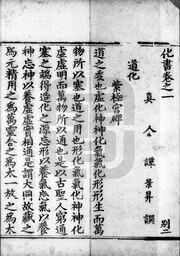 化書卷之一 別二
真人譚景昇譔
道化
紫極宮碑
道之委也虛化神神化氣氣化形形生而萬
物所以塞也道之用也形化氣氣化神神化
虛虛明而萬物所以通也是以古聖人窮通
塞之端得造化之源忘形以養氣忘氣以養
神忘神以養虛虛實相通是謂大同故藏之
爲元精用之爲萬靈含之爲太一放之爲太